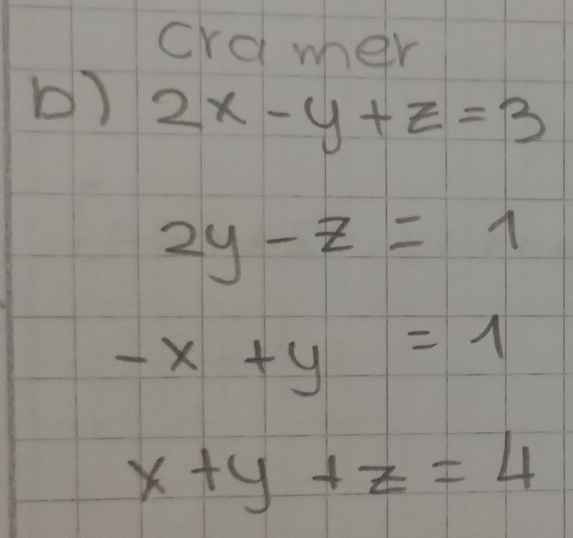 Cramer
b) 2x - y + z = 3
2y - z = 1
-x + y = 1
x + y + z = 4